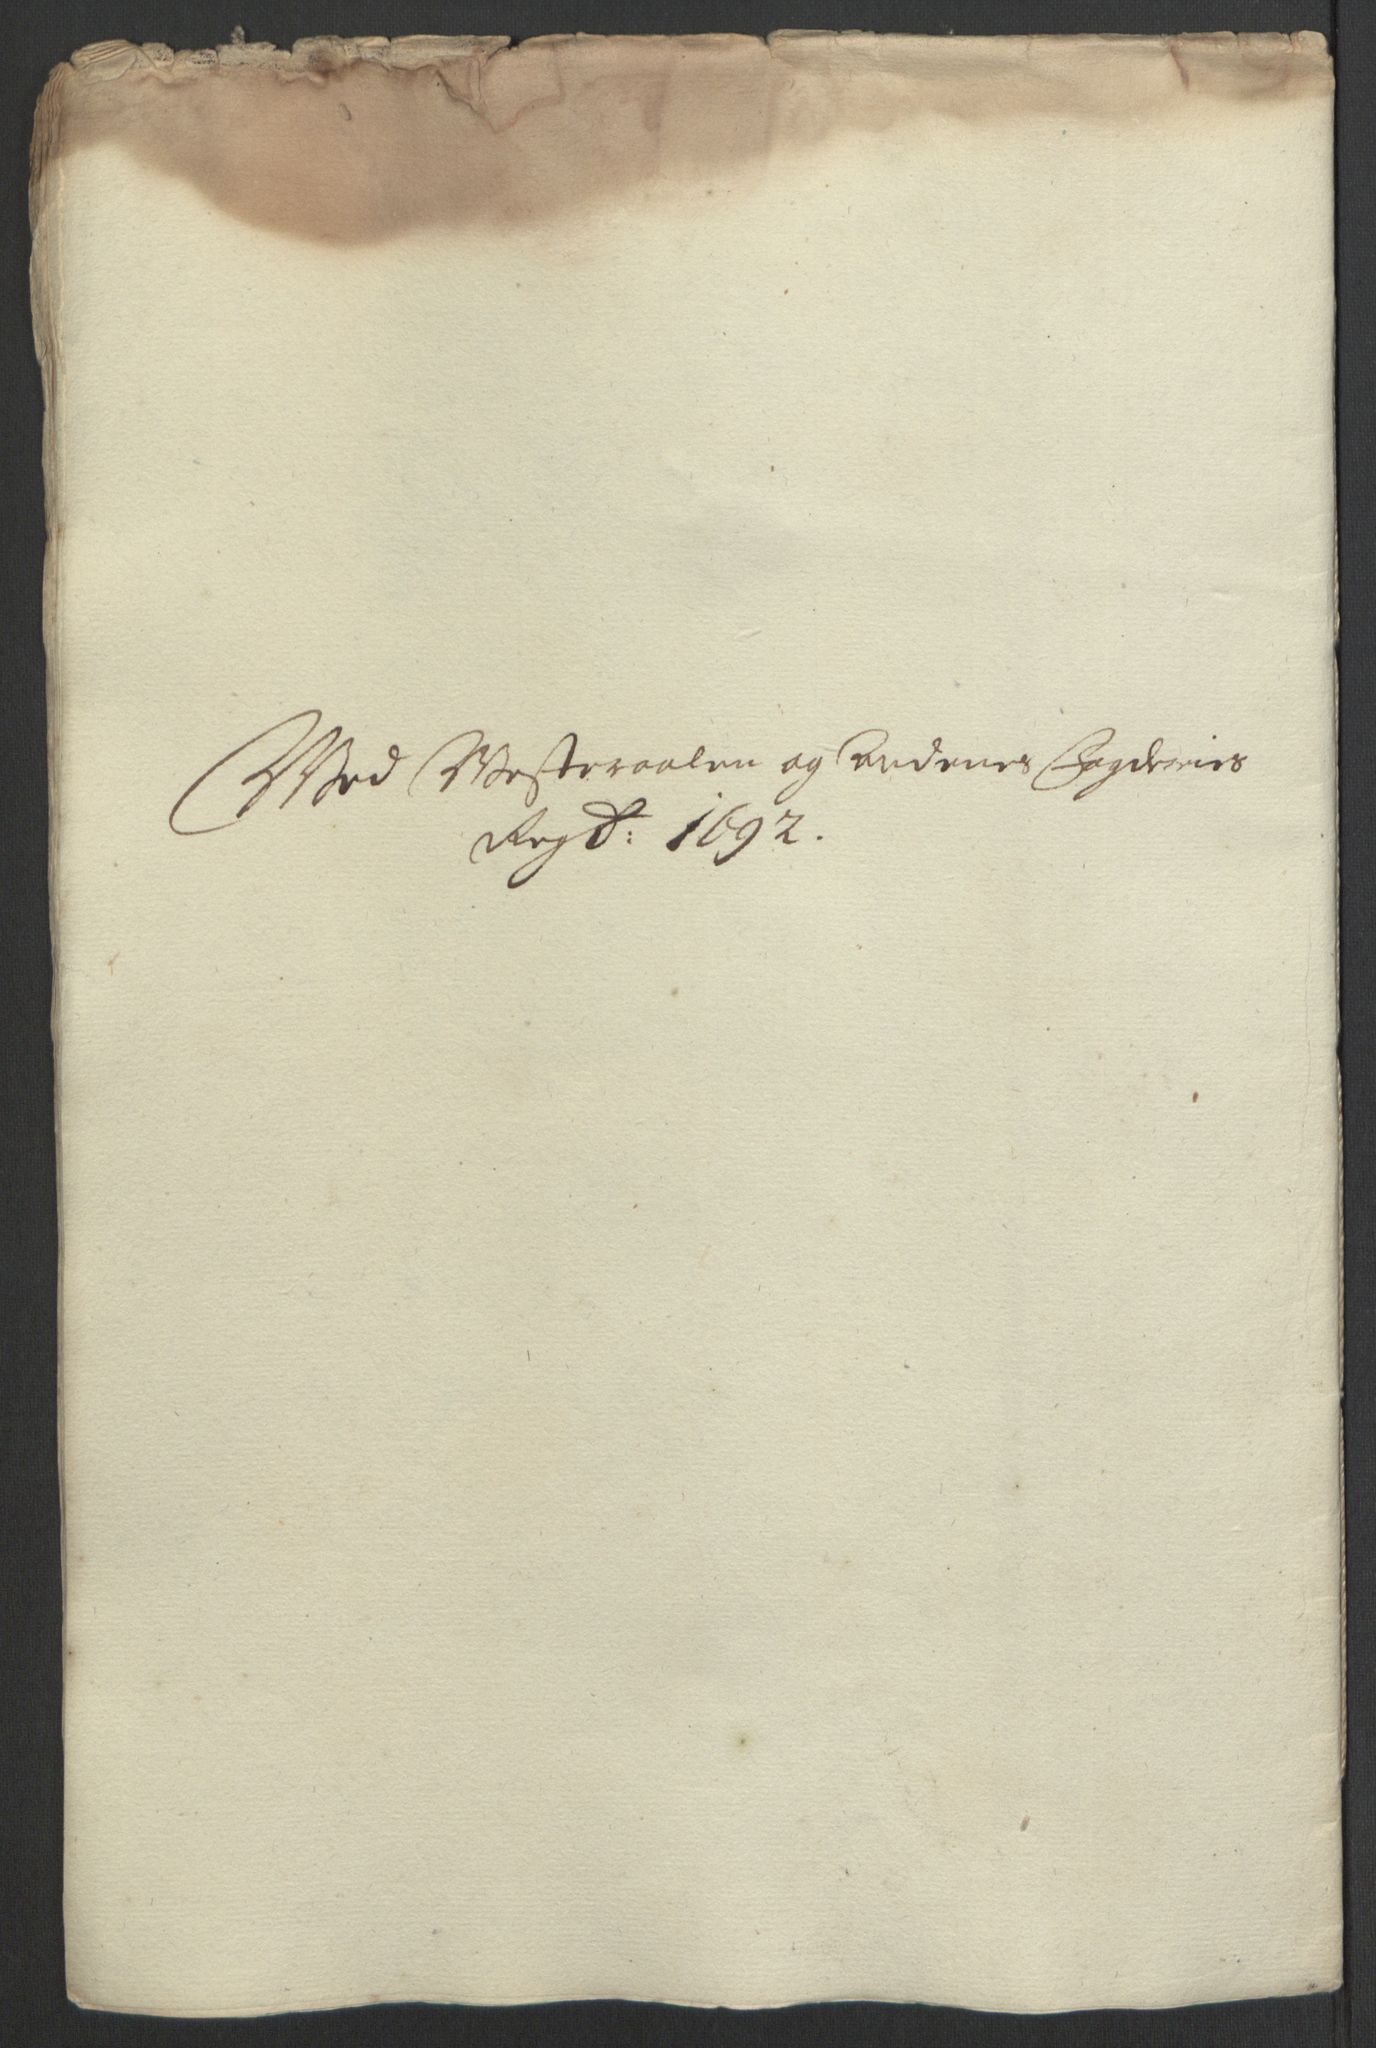 Med Westeraalen og Andenes Fogderies
Regsk: 1692.